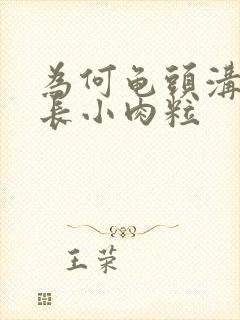 為何龟頭溝
長小肉粒
王荣